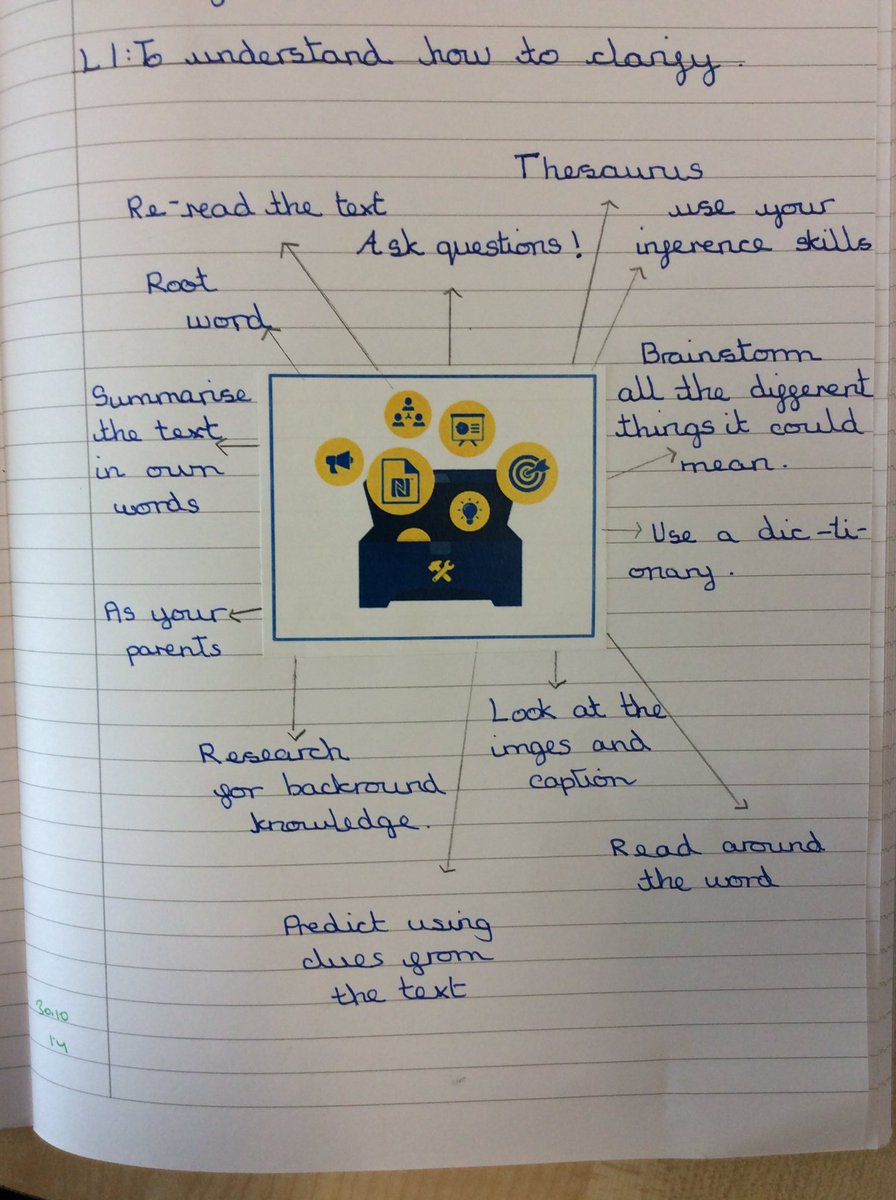 LI: To understand how to clarify.
Thesaurus
Re-read the text
use your
inference skills
Ask questions!
Root
word
Brainstorm
all the different
things it could
mean.
Summarise
the text
in own
words
Use a dic-ti-
onary.
As your
parents
Look at the
imges and
caption
Research
for backround
knowledge.
Read around
the word
Predict using
clues from
the text
30.10
14
N